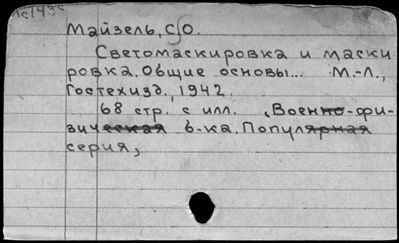 Майзель, С.О.
Светомаскировка и маски
ровка. Общие основы... М.-Л.,
Гостехизд., 1942.
68 стр. с илл. (Военно-фи-
зическая б-ка. Популярная
серия)